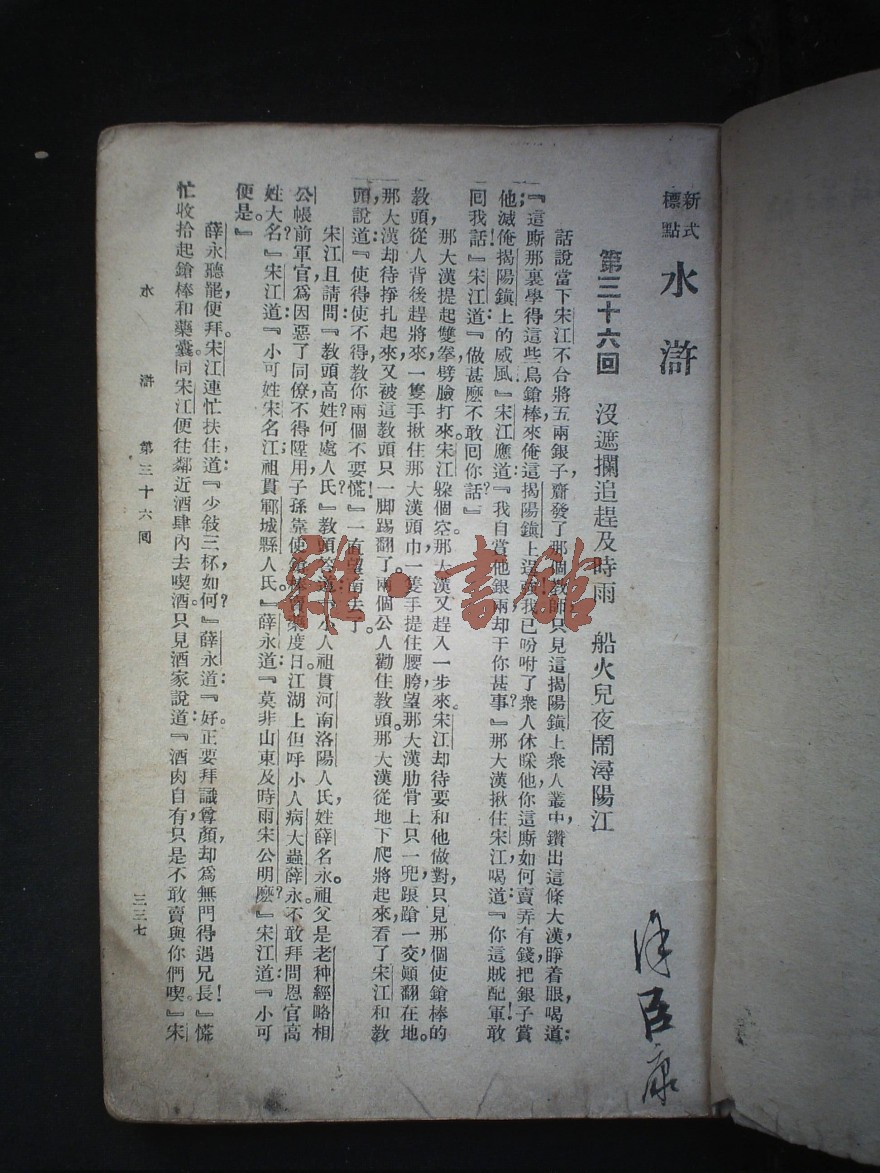 新式標點
水滸
第三十六回　沒遮攔追趕及時雨　船火兒夜鬧潯陽江
話說當下宋江不合將五兩銀子齎發了那個教師只見這揭陽鎮上衆人叢中，鑽出這條大漢，睜着眼，喝道：
『這廝那裏學得這些鳥鎗棒來俺這揭陽鎮上逞強我已吩咐了衆人休睬他，你這廝如何賣弄有錢，把銀子賞
他；滅俺揭陽鎮上的威風！』宋江應道：『我自賞他銀兩却干你甚事？』那大漢揪住宋江，喝道：『你這賊配軍敢
囘我話！』宋江道：『做甚麽不敢囘你話？』
那大漢提起雙拳，劈臉打來。宋江躲個空。那大漢又趕入一步來。宋江却待要和他做對，只見那個使鎗棒的
教頭從人背後趕將來，一隻手揪住那大漢頭巾，一隻手提住腰胯，望那大漢肋骨上只一兜，踉蹌一交，顛翻在地。
那大漢却待掙扎起來，又被這教頭只一脚踢翻了。兩個公人勸住教頭。那大漢從地下爬將起來，看了宋江和教
頭，說道：『使得使不得，教你兩個不要慌！』一直望南去了。
宋江且請問『教頭高姓？何處人氏？』教頭答道：『小人祖貫河南洛陽人氏，姓薛名永。祖父是老种經略相
公帳前軍官，爲因惡了同僚，不得陞用；子孫靠使鎗棒賣藥度日。江湖上但呼小人病大蟲薛永。不敢拜問恩官高
姓大名？』宋江道：『小可姓宋名江，祖貫鄆城縣人氏。』薛永道：『莫非山東及時雨宋公明麽？』宋江道：『小可
便是。』
薛永聽罷，便拜。宋江連忙扶住，道：『少敍三杯，如何？』薛永道：『好。正要拜識尊顏，却爲無門得遇兄長！』慌
忙收拾起鎗棒和藥囊，同宋江便往鄰近酒肆內去喫酒。只見酒家說道：『酒肉自有，只是不敢賣與你們喫。』宋
水滸　第三十六回　三三七
臣康
雜·書館